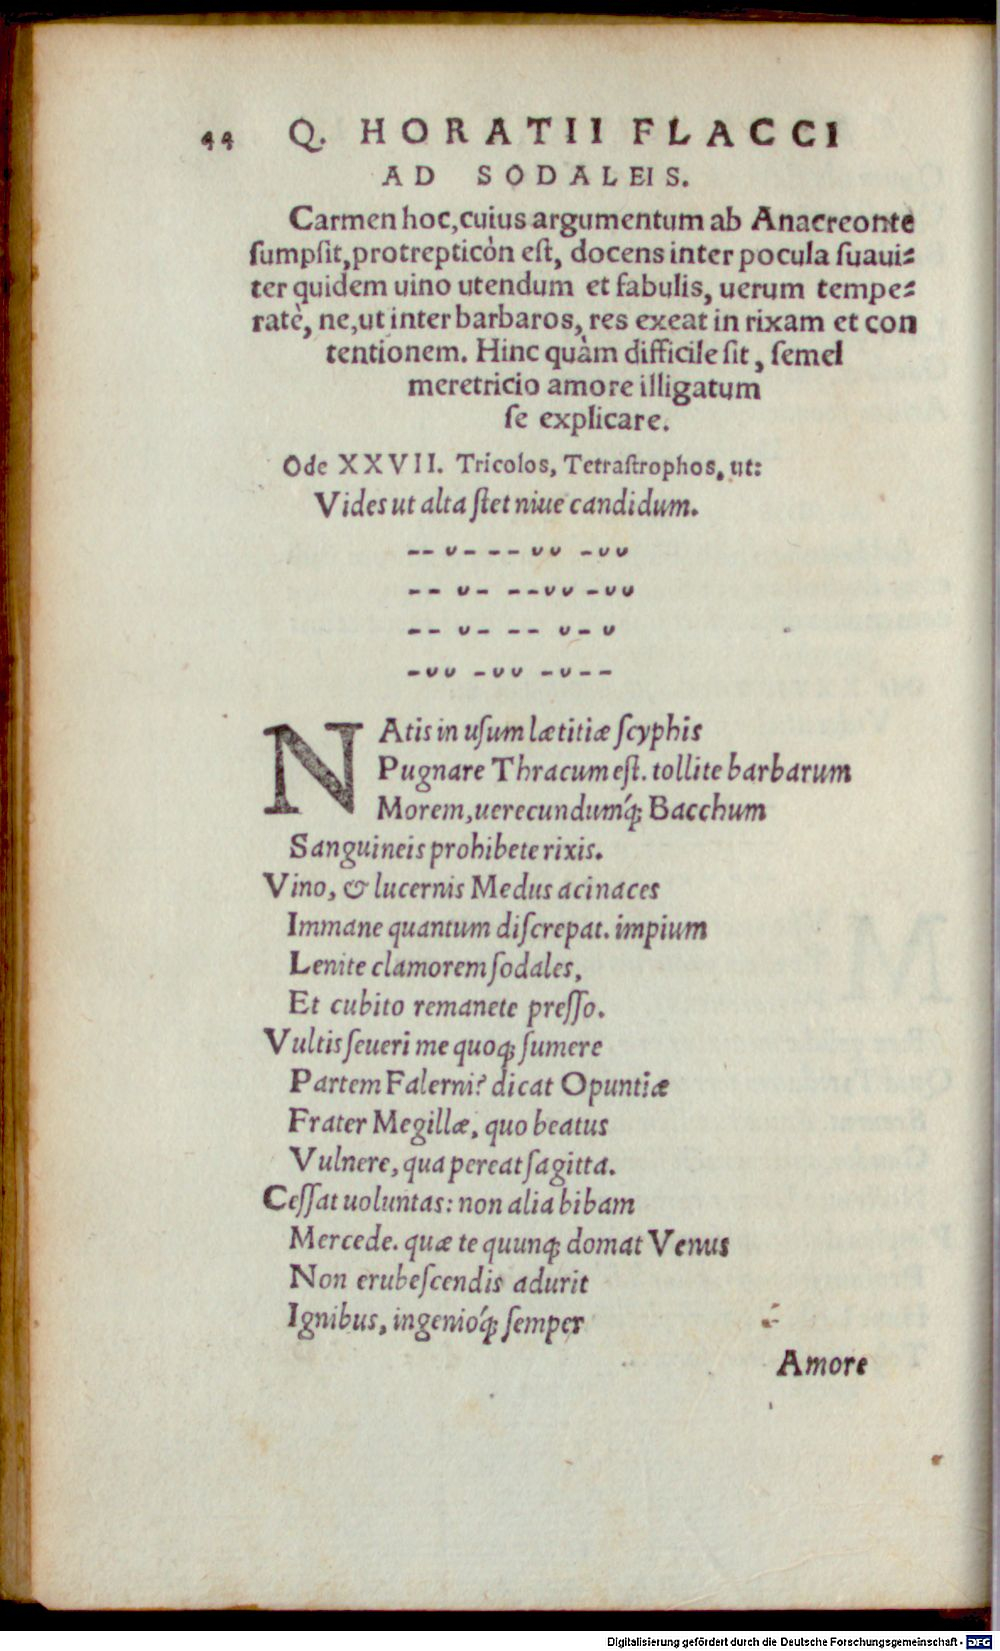 44 Q. HORATII FLACCI
AD SODALEIS.
Carmen hoc, cuius argumentum ab Anacreonte
sumpsit, protrepticòn est, docens inter pocula suaui⸗
ter quidem uino utendum et fabulis, uerum tempe⸗
ratè, ne, ut inter barbaros, res exeat in rixam et con
tentionem. Hinc quàm difficile sit, semel
meretricio amore illigatum
se explicare.
Ode XXVII. Tricolos, Tetrastrophos, ut:
Vides ut alta ſtet niue candidum.
-- ᴗ- -- ᴗᴗ -ᴗᴗ
-- ᴗ- --ᴗᴗ -ᴗᴗ
-- ᴗ- -- ᴗ- ᴗ
-ᴗᴗ -ᴗᴗ -ᴗ--
NAtis in uſum lætitiæ ſcyphis
Pugnare Thracum eſt. tollite barbarum
Morem, uerecundumq́; Bacchum
Sanguineis prohibete rixis.
Vino, & lucernis Medus acinaces
Immane quantum diſcrepat. impium
Lenite clamorem ſodales,
Et cubito remanete preſſo.
Vultis ſeueri me quoq; ſumere
Partem Falerni? dicat Opuntiæ
Frater Megillæ, quo beatus
Vulnere, qua pereat ſagitta.
Ceſſat uoluntas: non alia bibam
Mercede. quæ te quunq; domat Venus
Non erubeſcendis adurit
Ignibus, ingenioq́; ſemper
Amore
Digitalisierung gefördert durch die Deutsche Forschungsgemeinschaft - DFG